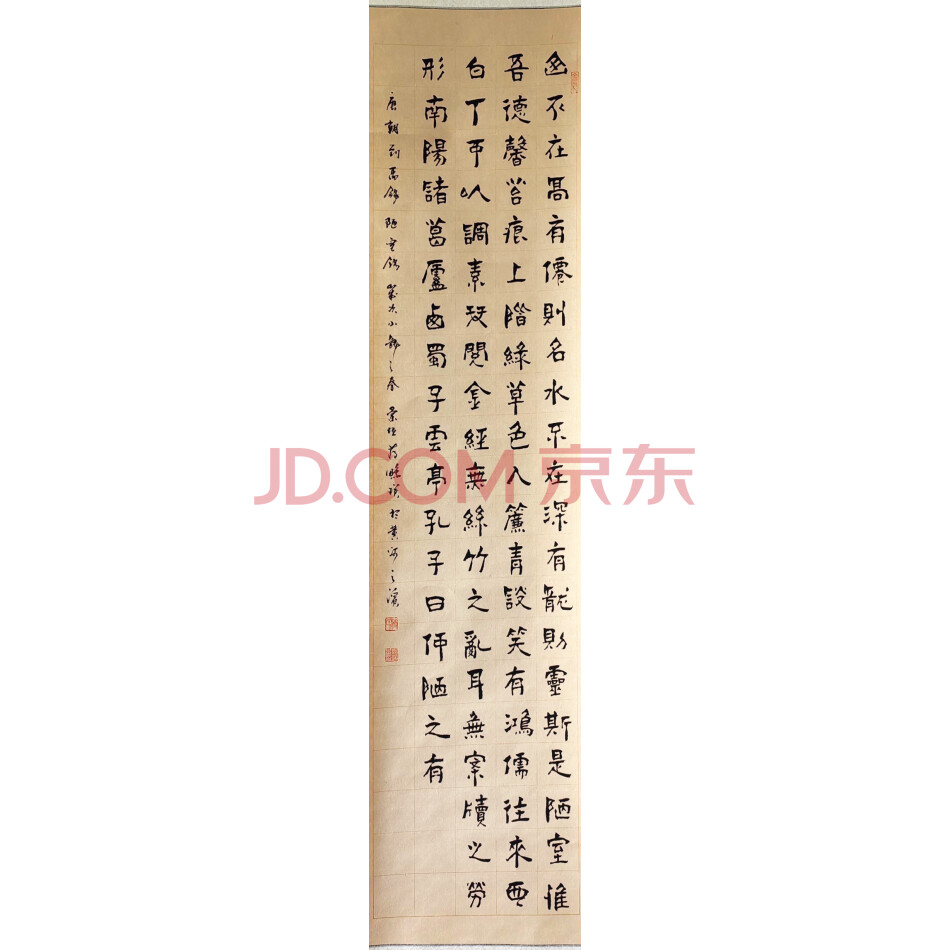 山不在高有僊則名水不在深有龍則靈斯是陋室惟
吾德馨苔痕上階綠草色入簾青談笑有鴻儒往來無
白丁可以調素琴閱金經無絲竹之亂耳無案牘之勞
形南陽諸葛廬西蜀子雲亭孔子曰何陋之有
唐朝劉禹錫陋室銘歲次小龍之春於黃河之濱
JD.COM 京东